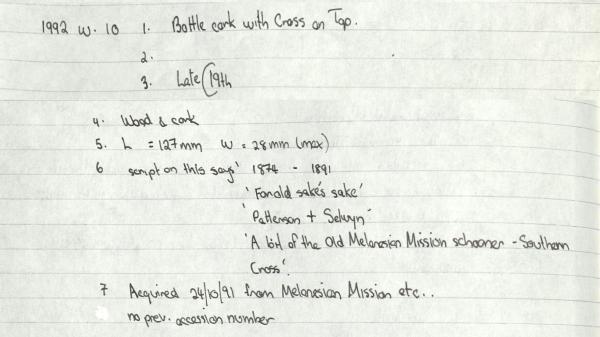 1992 W. 10 1. Bottle cork with Cross on Top.
2.
3. Late 19th
4. Wood & cork
5. L = 127mm W = 28mm (max)
6 script on this says' 1874 - 1891
'Forold sake's sake'
'Patterson + Selwyn'
'A bit of the Old Melanesian Mission schooner - Southern
Cross'.
7 Acquired 24/10/91 from Melanesian Mission etc..
no prev. accession number